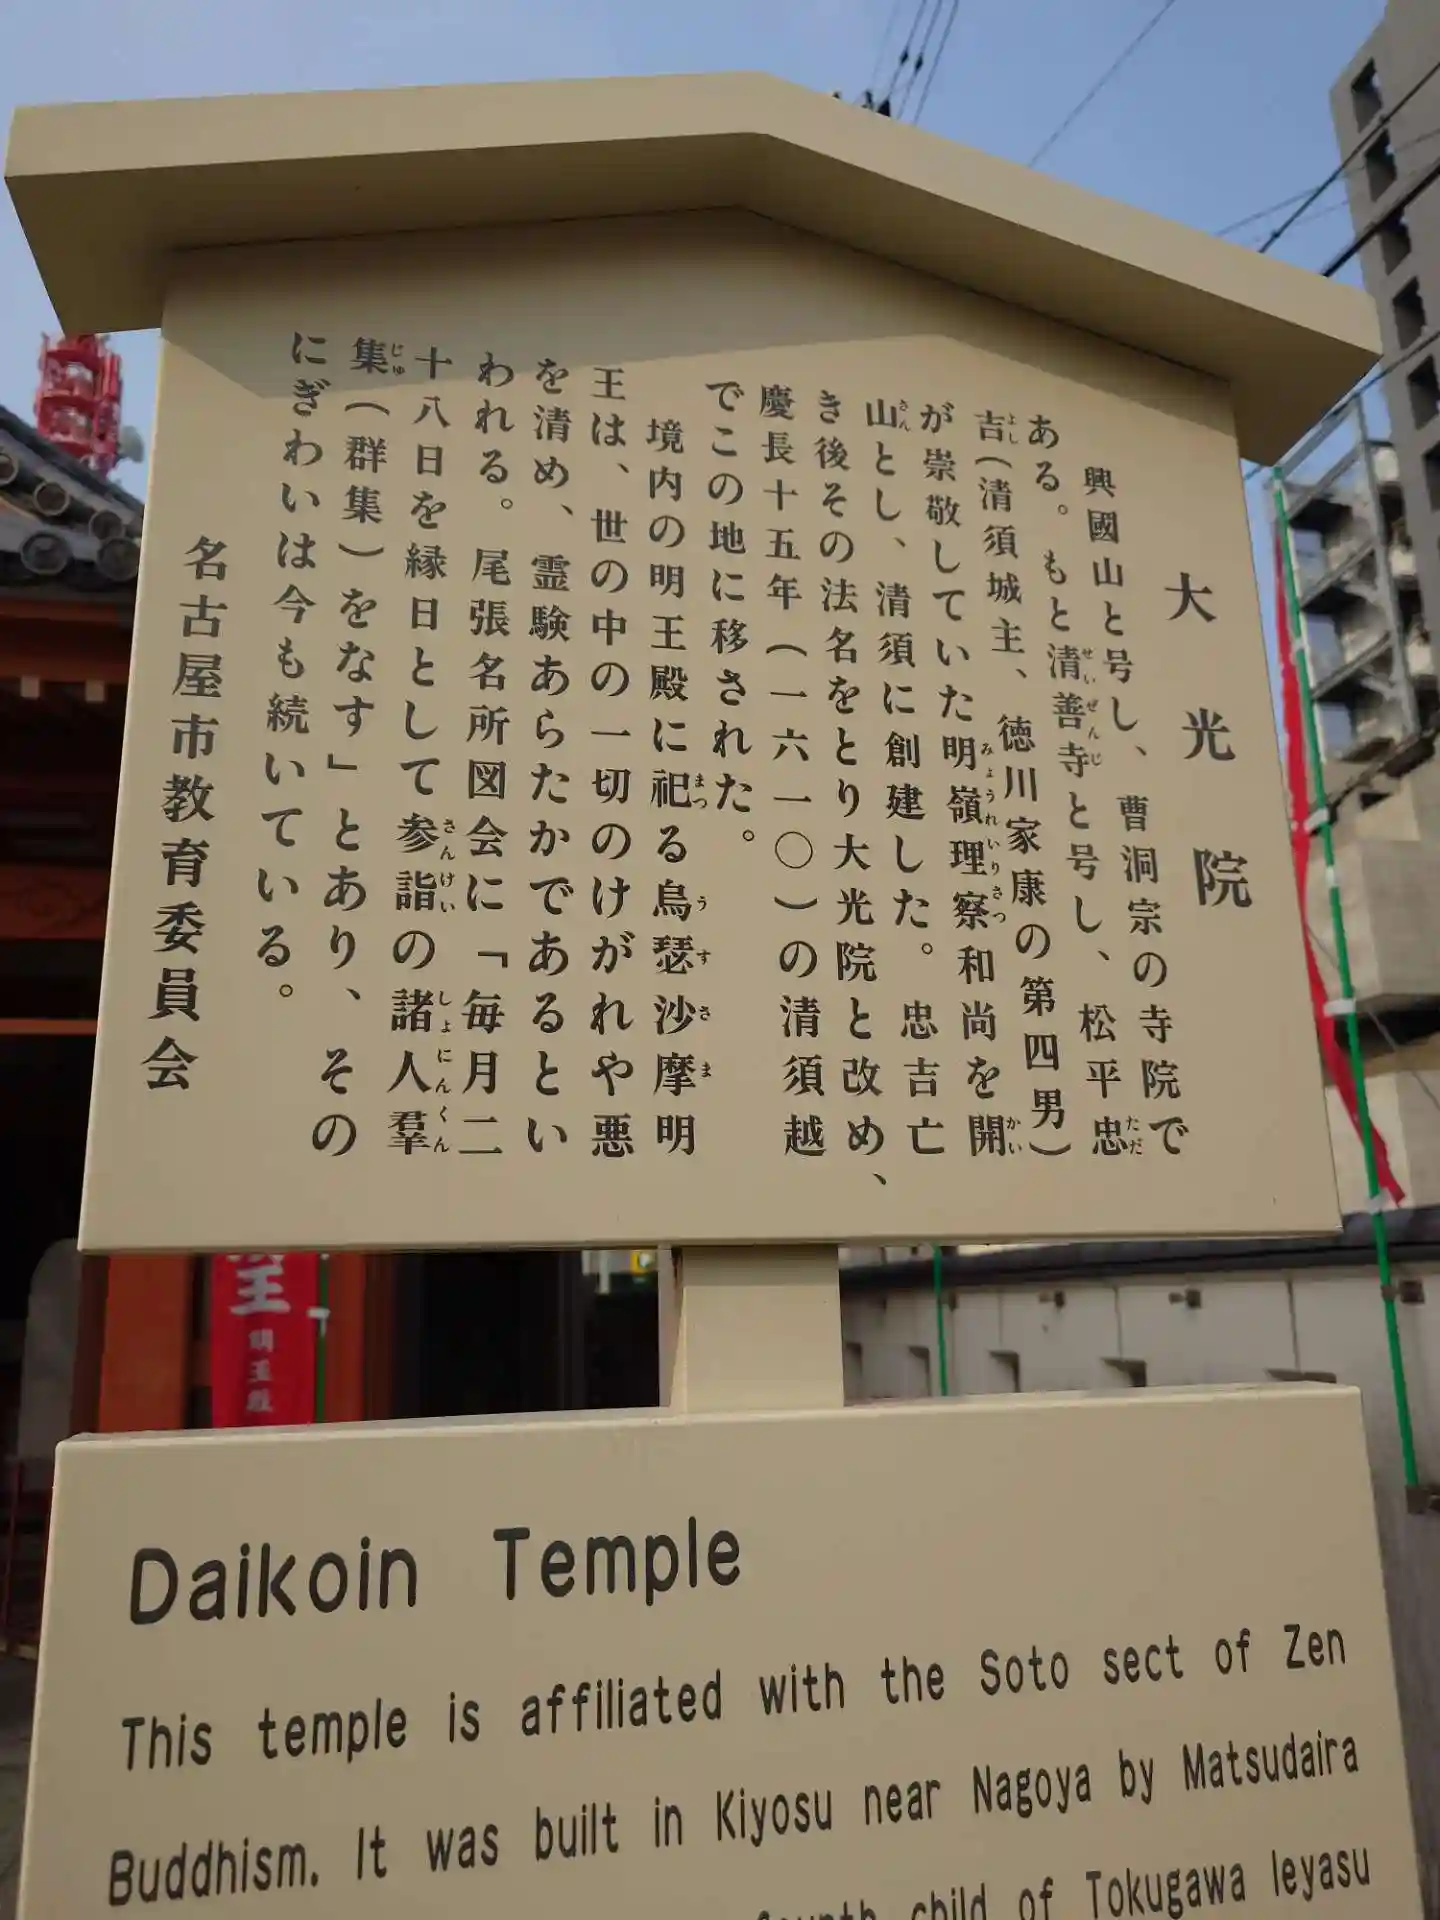 大光院
興國山と号し、曹洞宗の寺院で
ある。もと清善寺と号し、松平忠
吉(清須城主、徳川家康の第四男)
が崇敬していた明嶺理察和尚を開
山とし、清須に創建した。忠吉亡
き後その法名をとり大光院と改め、
慶長十五年(一六一〇)の清須越
でこの地に移された。
境内の明王殿に祀る烏瑟沙摩明
王は、世の中の一切のけがれや悪
を清め、霊験あらたかであるとい
われる。尾張名所図会に「毎月二
十八日を縁日として参詣の諸人羣
集(群集)をなす」とあり、その
にぎわいは今も続いている。
名古屋市教育委員会
王
明王殿
Daikoin Temple
This temple is affiliated with the Soto sect of Zen
Buddhism. It was built in Kiyosu near Nagoya by Matsudaira
fourth child of Tokugawa Ieyasu